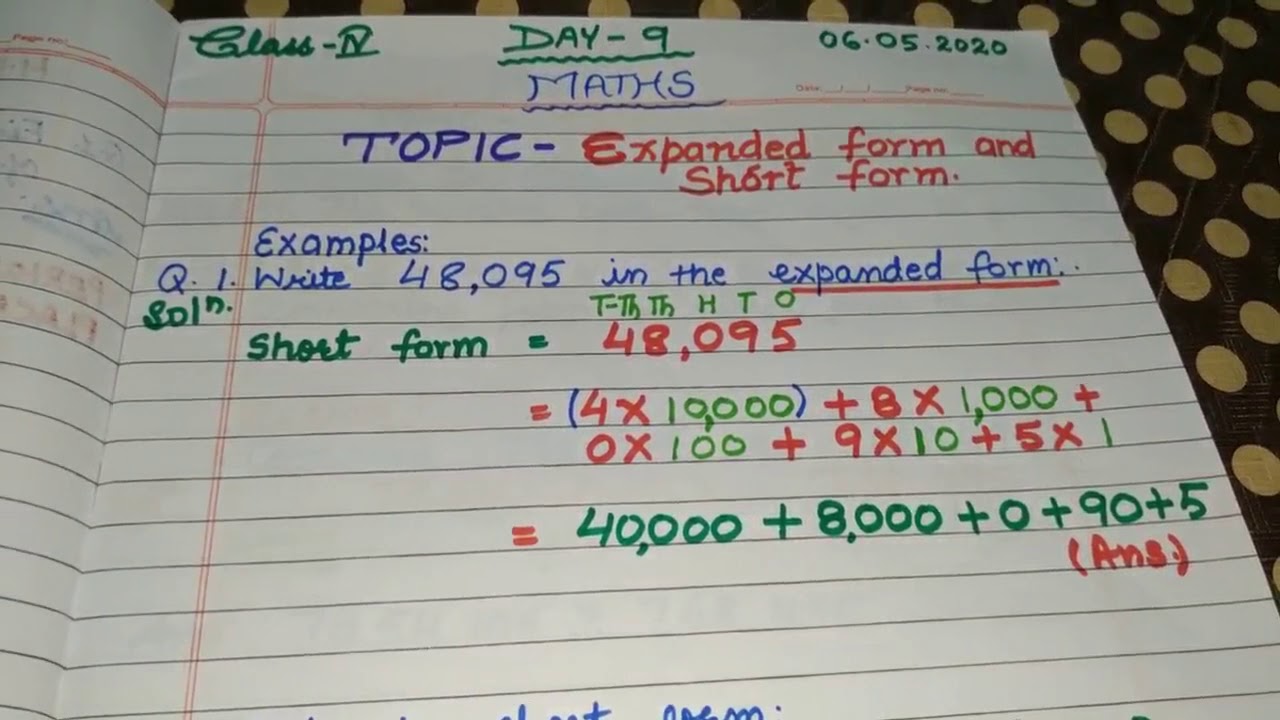 Class-IV DAY-9 06.05.2020
MATHS
Date:__/__/__Page no:____
TOPIC- Expanded form and
Short form.
Examples:
Q. 1. Write 48,095 in the expanded form:.
Soln. T-Th Th H T O
Short form = 48,095
= (4 × 10,000) + 8 × 1,000 +
0 × 100 + 9 × 10 + 5 × 1
= 40,000 + 8,000 + 0 + 90 + 5
(Ans.)
short